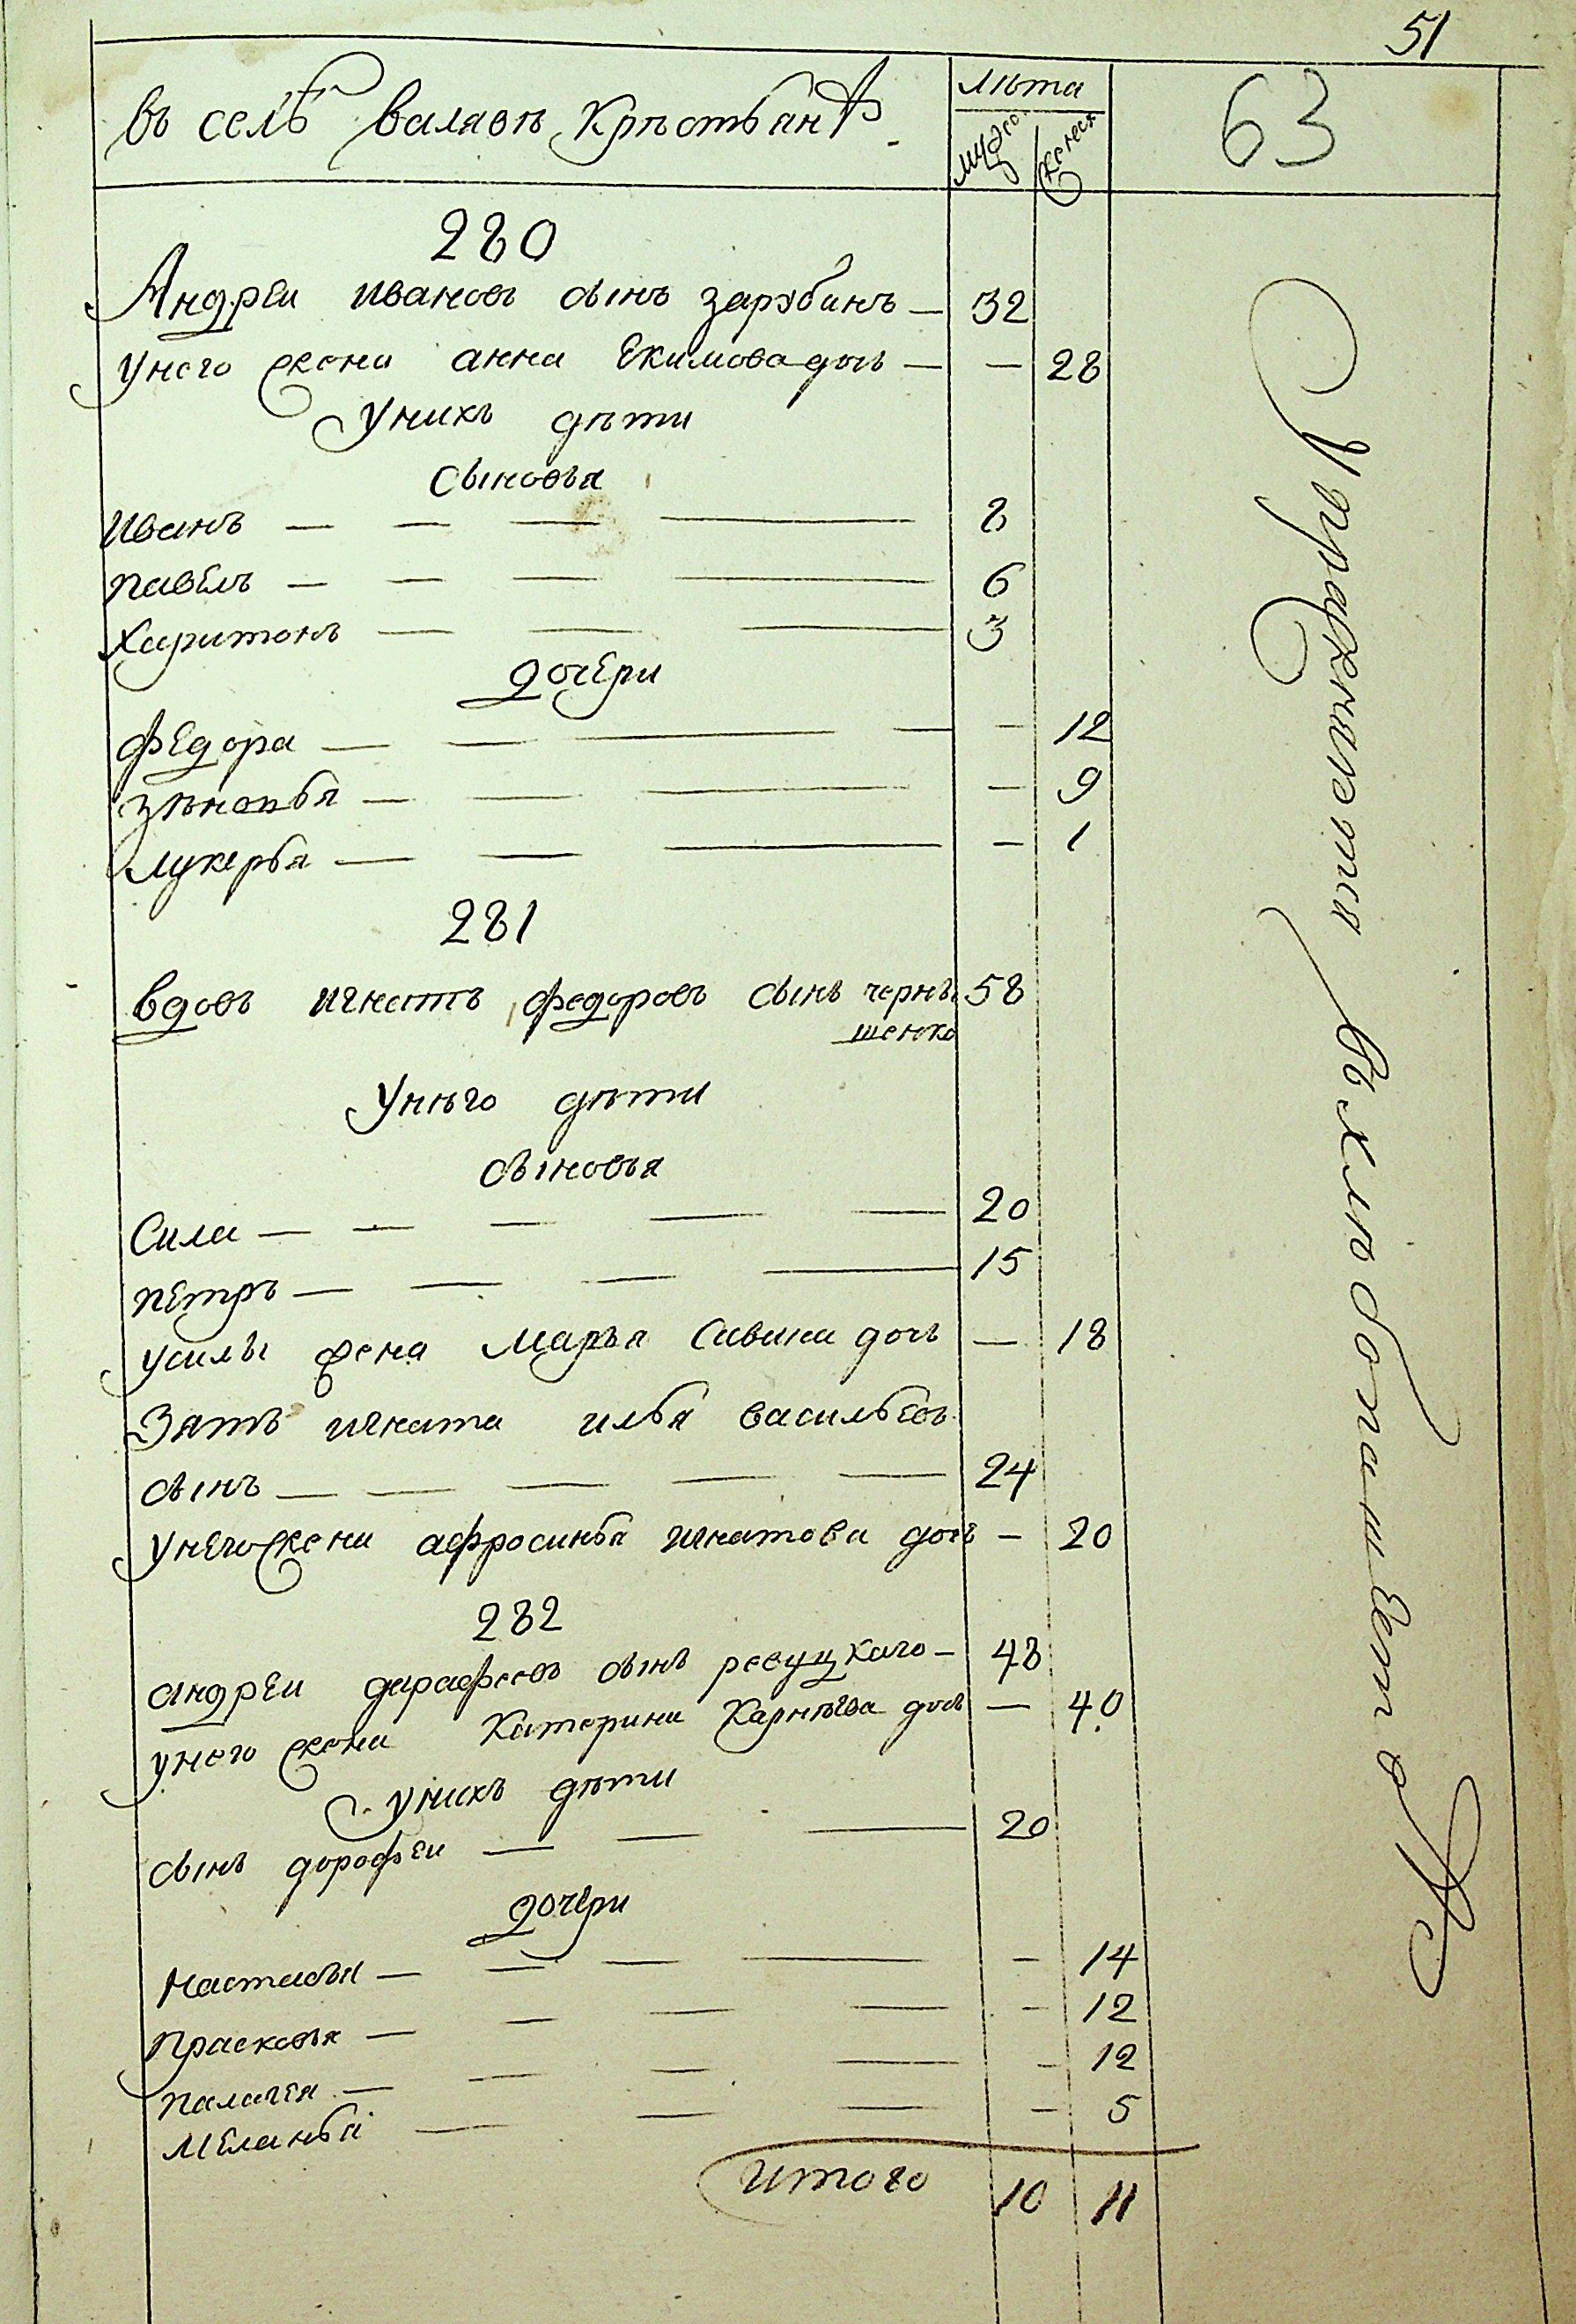 51
въ селѣ валявѣ крѣстьянъ
лѣта
мужс.
женск
63
280
Андреи ивановъ сынъ зарубинъ — 32
унего жена анна Екимова дочь — — 28
унихъ дѣти
сыновья
иванъ — — — — 8
павелъ — — — — 6
харитонъ — — — 3
дочери
федора — — — — — 12
зѣновья — — — — — 9
лукерья — — — — 1
281
вдовъ игнатъ федоровъ сынъ черны 58
шенко
унѣго дѣти
сыновья
Сила — — — — — 20
петръ — — — — 15
усилы жена марья Савина дочь — 18
Зять игната илья васильевъ
сынъ — — — — — 24
унего жена афросинья игнатова дочь — 20
282
андреи дарафеевъ сынъ ревуцкаго — 48
унего жена катерина карнѣева дочь — 40
унихъ дѣти
сынъ дорофеи — — — 20
дочери
настасья — — — — — 14
прасковья — — — — — 12
палагея — — — — — 12
меланья — — — — 5
итого 10 11
Упражняются в хлѣбопашестве